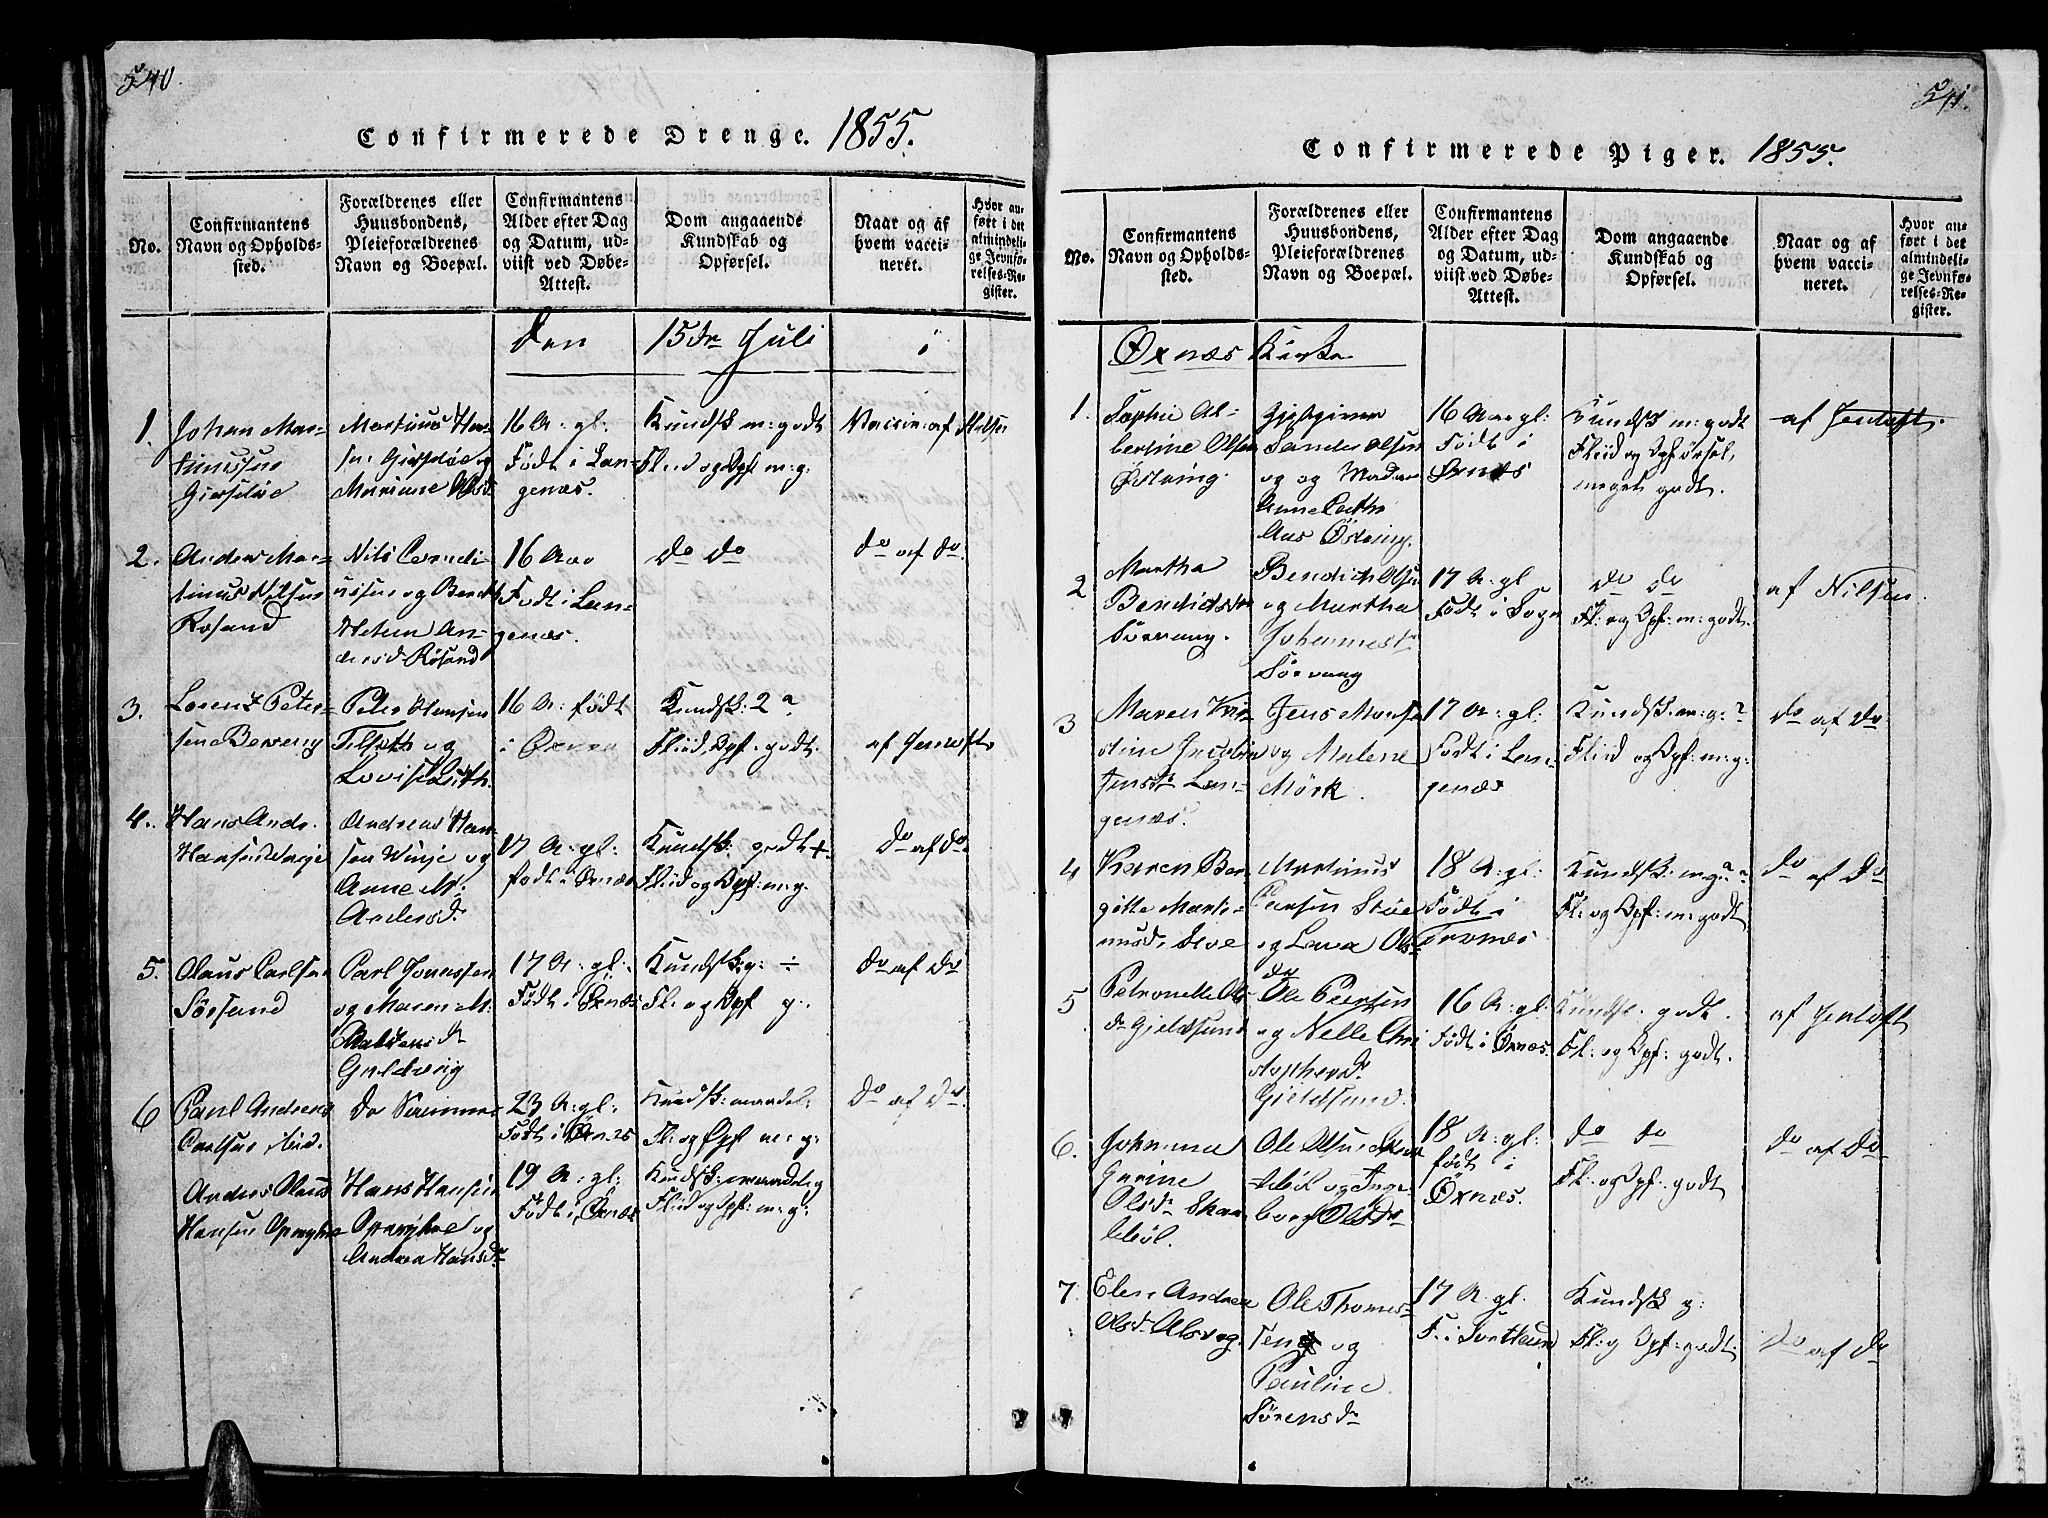 540.
Confirmerede Drenge. 1855.
No.
Confirmantens
Navn og Opholds-
sted.
Forældrenes eller
Huusbondens,
Pleieforældrenes
Navn og Boepæl.
Confirmantens
Alder efter Dag
og Datum, ud-
viist ved Døbe-
Attest.
Dom angaaende
Kundskab og
Opførsel.
Naar og af
hvem vacci-
neret.
Hvor an-
ført i det
almindeli-
ge Jevnfø-
relses-Re-
gister.
Den 15de Juli i
1.
Johan Mar-
tinussen
Martinus Han-
sen og
Mariane Olsd
16 A. gl:
Født i Lan-
genæs.
Kundsk m: godt
Flid og Opf m: g:
Vaccin. af Nilsen
2.
Anders Mar-
tinus Nilsen
Rosand
Nils Corneli-
ussen og Berit
Helena An-
dersd Rosand
16 Aar
Født i Lan-
genæs.
do do
do af do.
3.
Lorentz Peter-
sen
Peter Hansen
Tilseth og
Lovise
16 A: født
i Øxnes
Kundsk: 2a
Flid. Opf. godt.
af Jentoft
4.
Hans Andr.
Hansen Vinje
Andreas Han-
sen Winje og
Anne M:
Andersd.
17 A: gl:
født i Øxnæs
Kundsk: godt +
Flid og Opf: m: g.
do af do
5.
Olaus Carlsen
Sørsand
Carl Jonassen
og Maren M:
17 A: gl:
Født i Øxnæs
Kundsk: g: ÷
Fl: og Opf g.
do af do
6
Paul Andreas
Carlsen ibid.
De Samme
23 A: gl:
Født i Øxnæs
Kundsk: maadel:
Fl: og Opf m: g:
do af do.
Anders Olaus
Hansen
Hans Hansen
og
Andrea Hansdr
19 A: gl:
Født i Øxnæs
Kundsk: maadelig
Flid og Opf: m: g:
541.
Confirmerede Piger. 1855.
No.
Confirmantens
Navn og Opholds-
sted.
Forældrenes eller
Huusbondens,
Pleieforældrenes
Navn og Boepæl.
Confirmantens
Alder efter Dag
og Datum, ud-
viist ved Døbe-
Attest.
Dom angaaende
Kundskab og
Opførsel.
Naar og af
hvem vacci-
neret.
Hvor an-
ført i det
almindeli-
ge Jevnfø-
relses-Re-
gister.
Øxnæs Kirke
1.
Sophie Al-
bertine Olsen
Gjestgiver
Sander Olsen
og og Madam
Anne Cathr
16 Aar gl:
Født i
Øxnæs
Kundsk m: godt
Flid og Opførsel,
meget godt.
af Jentoft.
2
Martha
Bendidsdr
Sørvaag.
Bendich Olsen
og Martha
Johannesd
Sørvaag
17 A: gl
Født i Sogn
do do
Fl: og Opf: m: godt.
af Nilsen
3
Maren Kri-
stine
Jensdr Lan-
genæs.
Jens Monsen
og Malene
Mörk.
17 A: gl:
Født i Lan-
genæs
Kundsk: m: g:
Flid og Opf: m: g:
do af do
4
Karen Ber-
gitte Marti-
nusd.
Martinus
Larsen Støe
og
18 A: gl:
Født i
Kundsk: m: g:
Fl: og Opf: m: godt
do af do
5
Petronelle Ols-
dr Gjeldsund
Ole Peersen
og Nelle Chri
stophersdr
Gjeldsund.
16 A: gl:
Født i Øxnæs.
Kundsk. godt.
Fl: og Opf: godt.
af Jentoft
6.
Johanna
Gurine
Olsdr Skar-
Ole Olsen
og Inge-
borg Olsdr
18 A: gl:
født i
Øxnæs.
do do
Fl: og Opf: godt
do af do
7
Elen Andrea
Olsdr Alsvog.
Ole Thomes-
sen og
Pauline
Sørensdr
17 A. gl.
F. i
Kundsk g:
Fl: og Opf: godt:
do af do